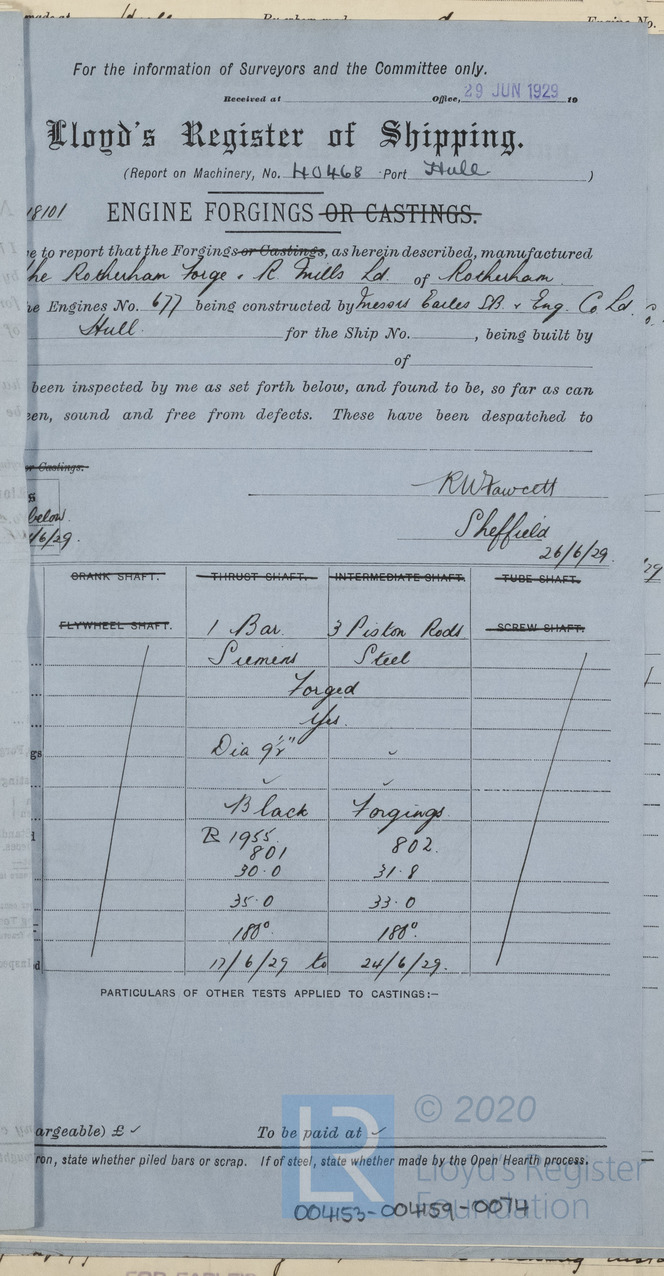 For the information of Surveyors and the Committee only.
Received at Office, 29 JUN 1929 19
Lloyd's Register of Shipping.
(Report on Machinery, No. 40468 Port Hull )
18101
ENGINE FORGINGS OR CASTINGS.
e to report that the Forgings or Castings, as herein described, manufactured
he Rotherham Forge & R Mills Ld. of Rotherham
he Engines No. 677 being constructed by Messrs Earles SB. & Eng. Co Ld.
Hull. for the Ship No. , being built by
of
been inspected by me as set forth below, and found to be, so far as can
een, sound and free from defects. These have been despatched to
or Castings.
s
below.
/6/29.
RW Fawcett
Sheffield
26/6/29.
CRANK SHAFT. THRUST SHAFT. INTERMEDIATE SHAFT. TUBE SHAFT.
FLYWHEEL SHAFT. 1 Bar. 3 Piston Rods SCREW SHAFT.
Siemens Steel
Forged
Yes.
Dia 9½"
Black Forgings
R 1955
801 802.
30.0 31.8
35.0 33.0
180° 180°.
17/6/29 to 24/6/29.
PARTICULARS OF OTHER TESTS APPLIED TO CASTINGS:–
argeable) £ To be paid at
ron, state whether piled bars or scrap. If of steel, state whether made by the Open Hearth process.
LR
© 2020
Lloyd's Register
Foundation
004153-004159-0074